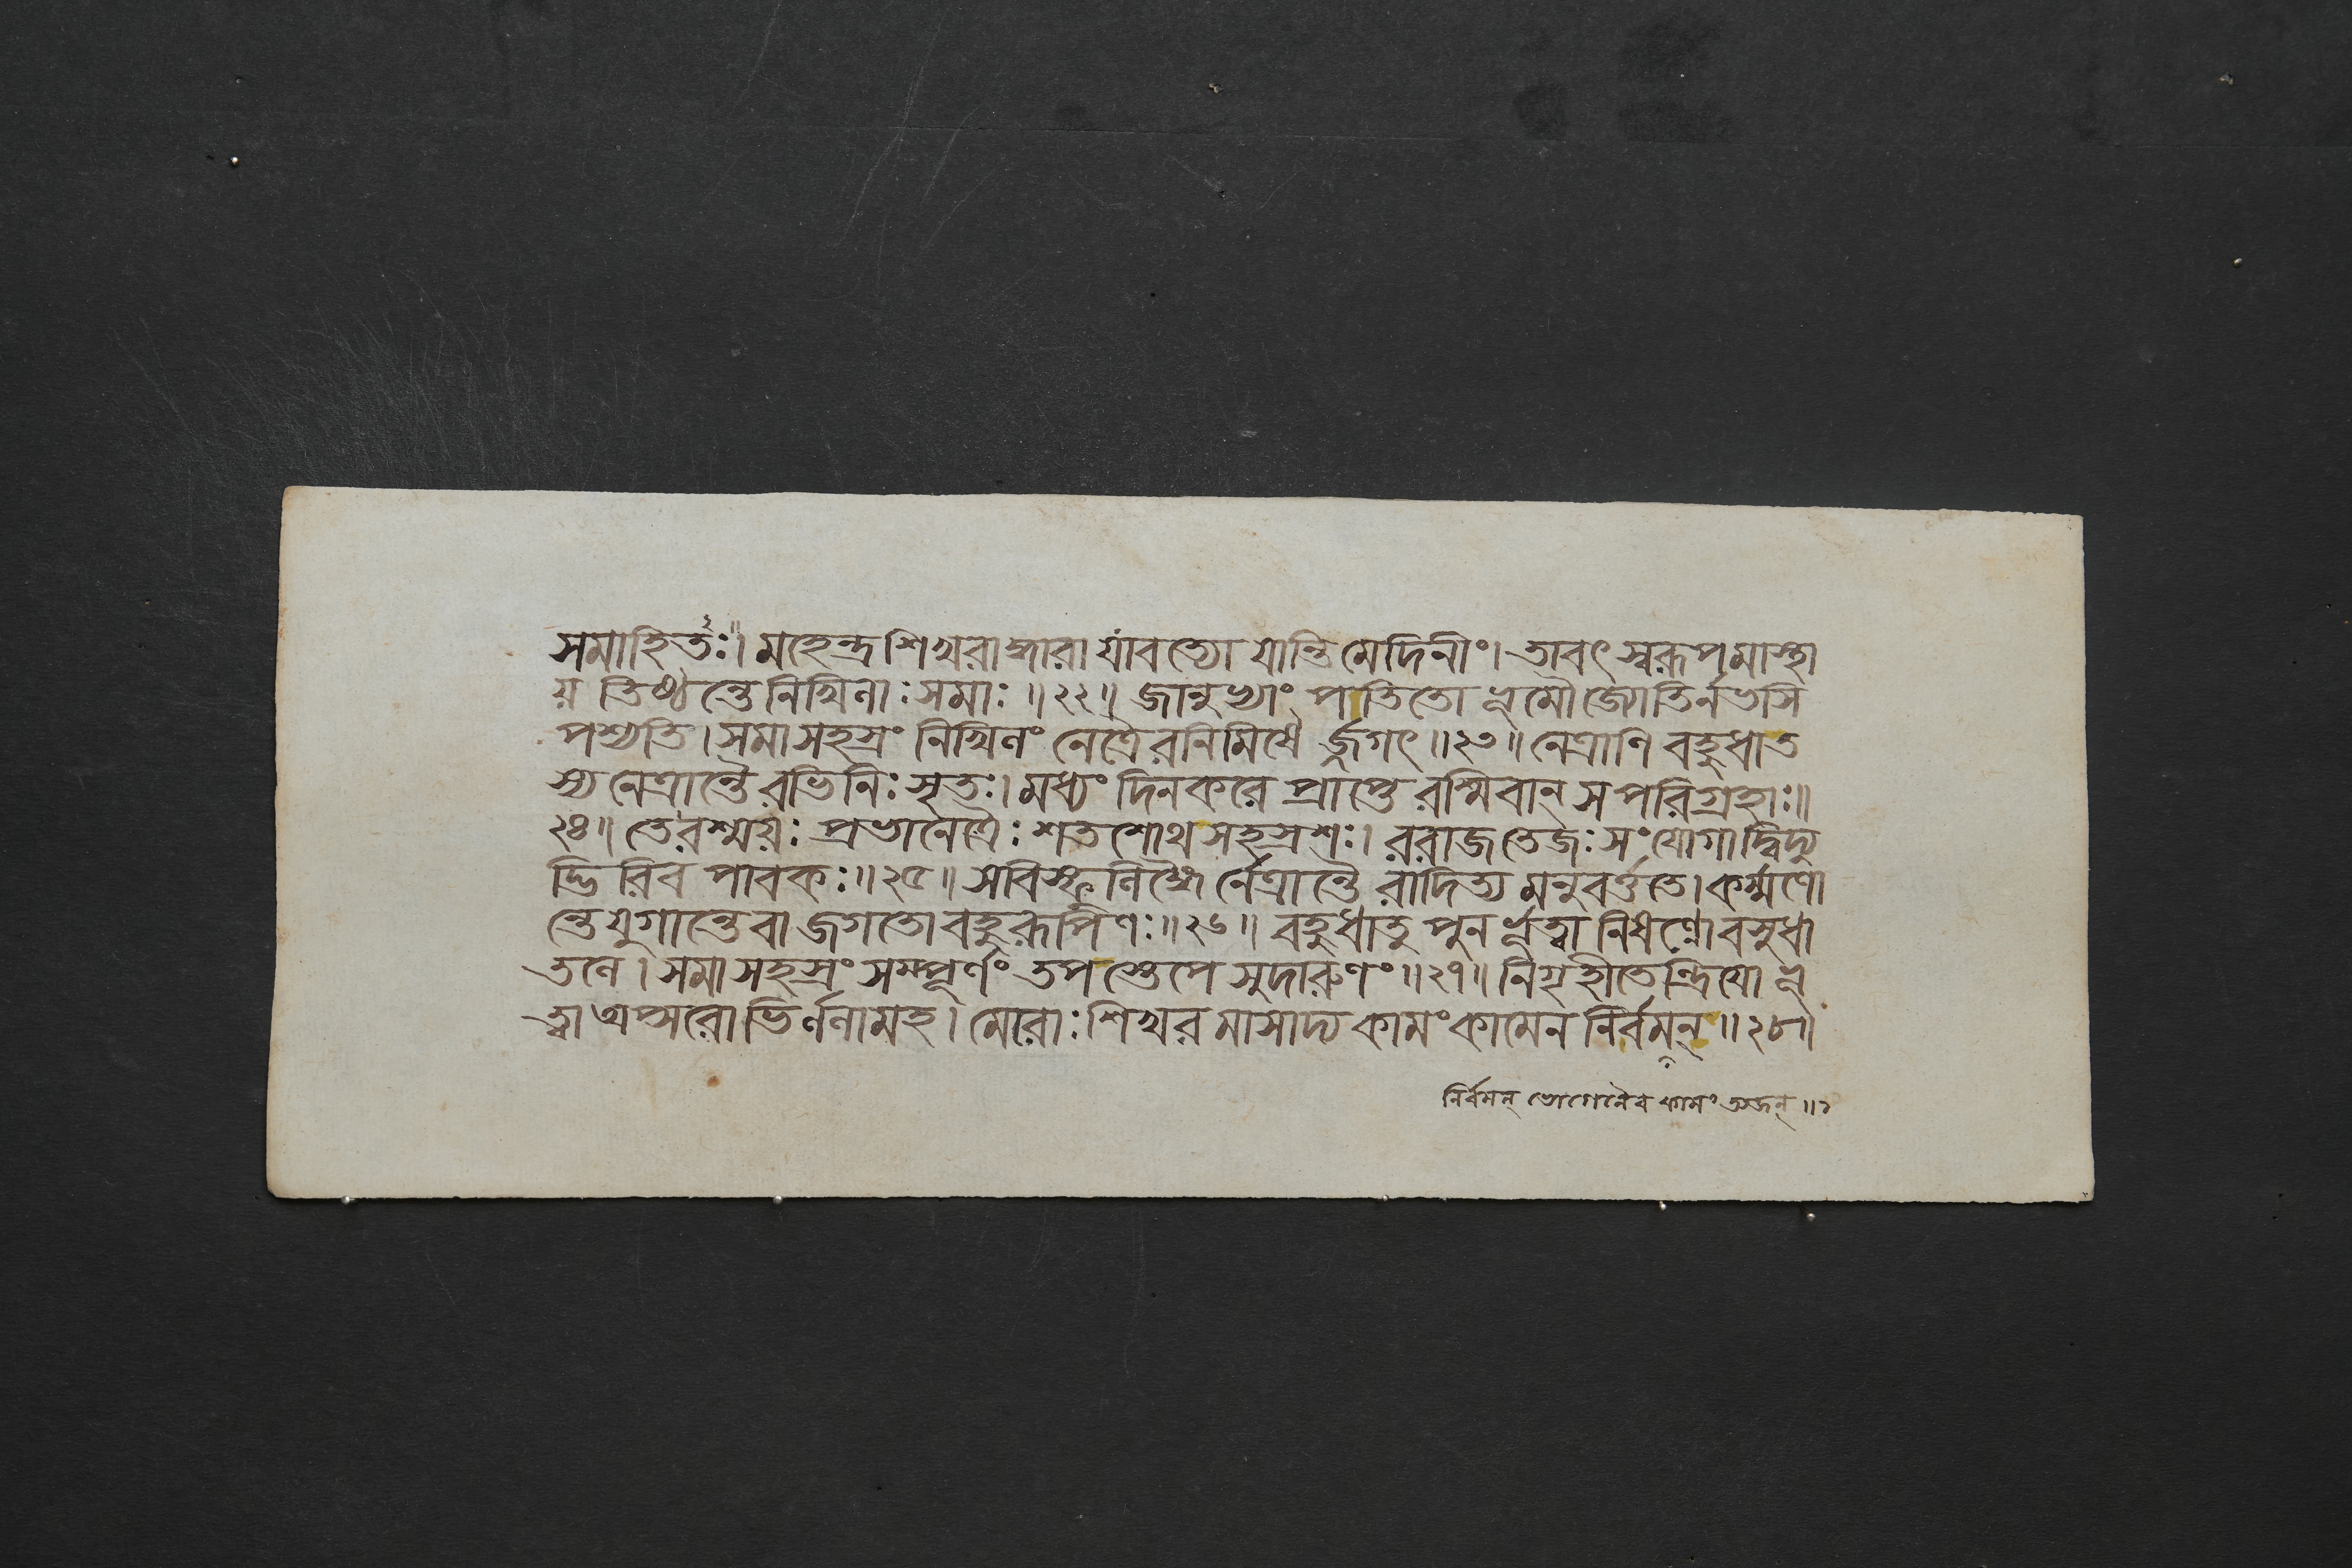 সমাহিতঃ। মহেন্দ্রশিখরাদ্ধারা যাবত্যো যান্তি মেদিনীং। তাবৎ স্বরূপমাস্থা
য় তিষ্ঠন্তে নিখিলাঃ সমাঃ ॥ ২২ ॥ জানুভ্যাং পতিতো ভূমৌ জ্যোতির্নভসি
পশ্যতি। সমাসহস্রং নিখিলং নেত্রৈরনিমিষৈ র্জগৎ ॥ ২৩ ॥ নেত্রাণি বহুধা ত
স্য নেত্রান্তৈরভিনিঃসৃতঃ। মধ্যং দিনকরে প্রাপ্তে রশ্মিবান্ সপরিগ্রহাঃ ॥
২৪ ॥ তে রশ্ময়ঃ প্রভানেত্রৈঃ শতশোথ সহস্রশঃ। ররাজ তেজঃসংযোগাদ্বিদ্যু
দ্ভিরিব পাবকঃ ॥ ২৫ ॥ সবিস্ফুলিঙ্গৈ র্নেত্রান্তৈরাদিত্যমনুবর্ত্ততে। কর্ম্মণো
ন্তে যুগান্তে বা জগতো বহুরূপিণঃ ॥ ২৬ ॥ বহুধা তু পুনর্ভূত্বা নিষণ্ণো বসুধা
তলে। সমাসহস্রং সম্পূর্ণং তপস্তেপে সুদারুণং ॥ ২৭ ॥ নিগৃহীতেন্দ্রিয়ো ভূ
ত্বা অপ্সরোভির্ললামহ। মেরোঃ শিখরমাসাদ্য কামং কামেন নির্বমন্ ॥ ২৮ ॥
নির্বমন্ ভোগেনৈব কামং ত্যজন্ ॥